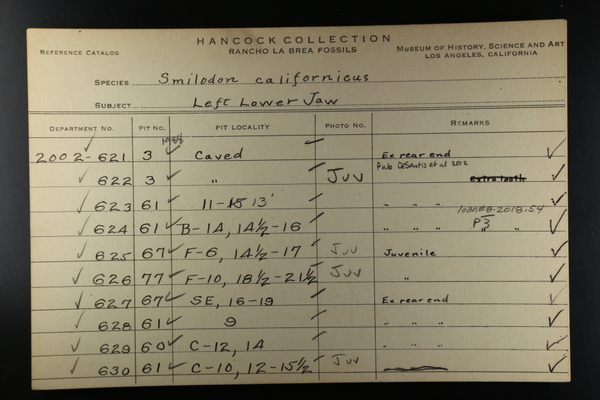 HANCOCK COLLECTION
REFERENCE CATALOG RANCHO LA BREA FOSSILS MUSEUM OF HISTORY, SCIENCE AND ART
LOS ANGELES, CALIFORNIA
SPECIES Smilodon californicus
SUBJECT Left Lower Jaw
DEPARTMENT NO. PIT NO. PIT LOCALITY PHOTO NO. REMARKS
2002-621 3 Caved Ex rear end
Pub DeSantis et al 2012
622 3 " Juv Extra tooth
623 61 11-15 13' " " "
Loan#8-2018.54
624 61 B-14, 14½-16 " " P3 "
625 67 F-6, 14½-17 Juv Juvenile
626 77 F-10, 18½-21½ Juv "
627 67 SE, 16-19 Ex rear end
628 61 9 " " "
629 60 C-12, 14 " " "
630 61 C-10, 12-15½ Juv